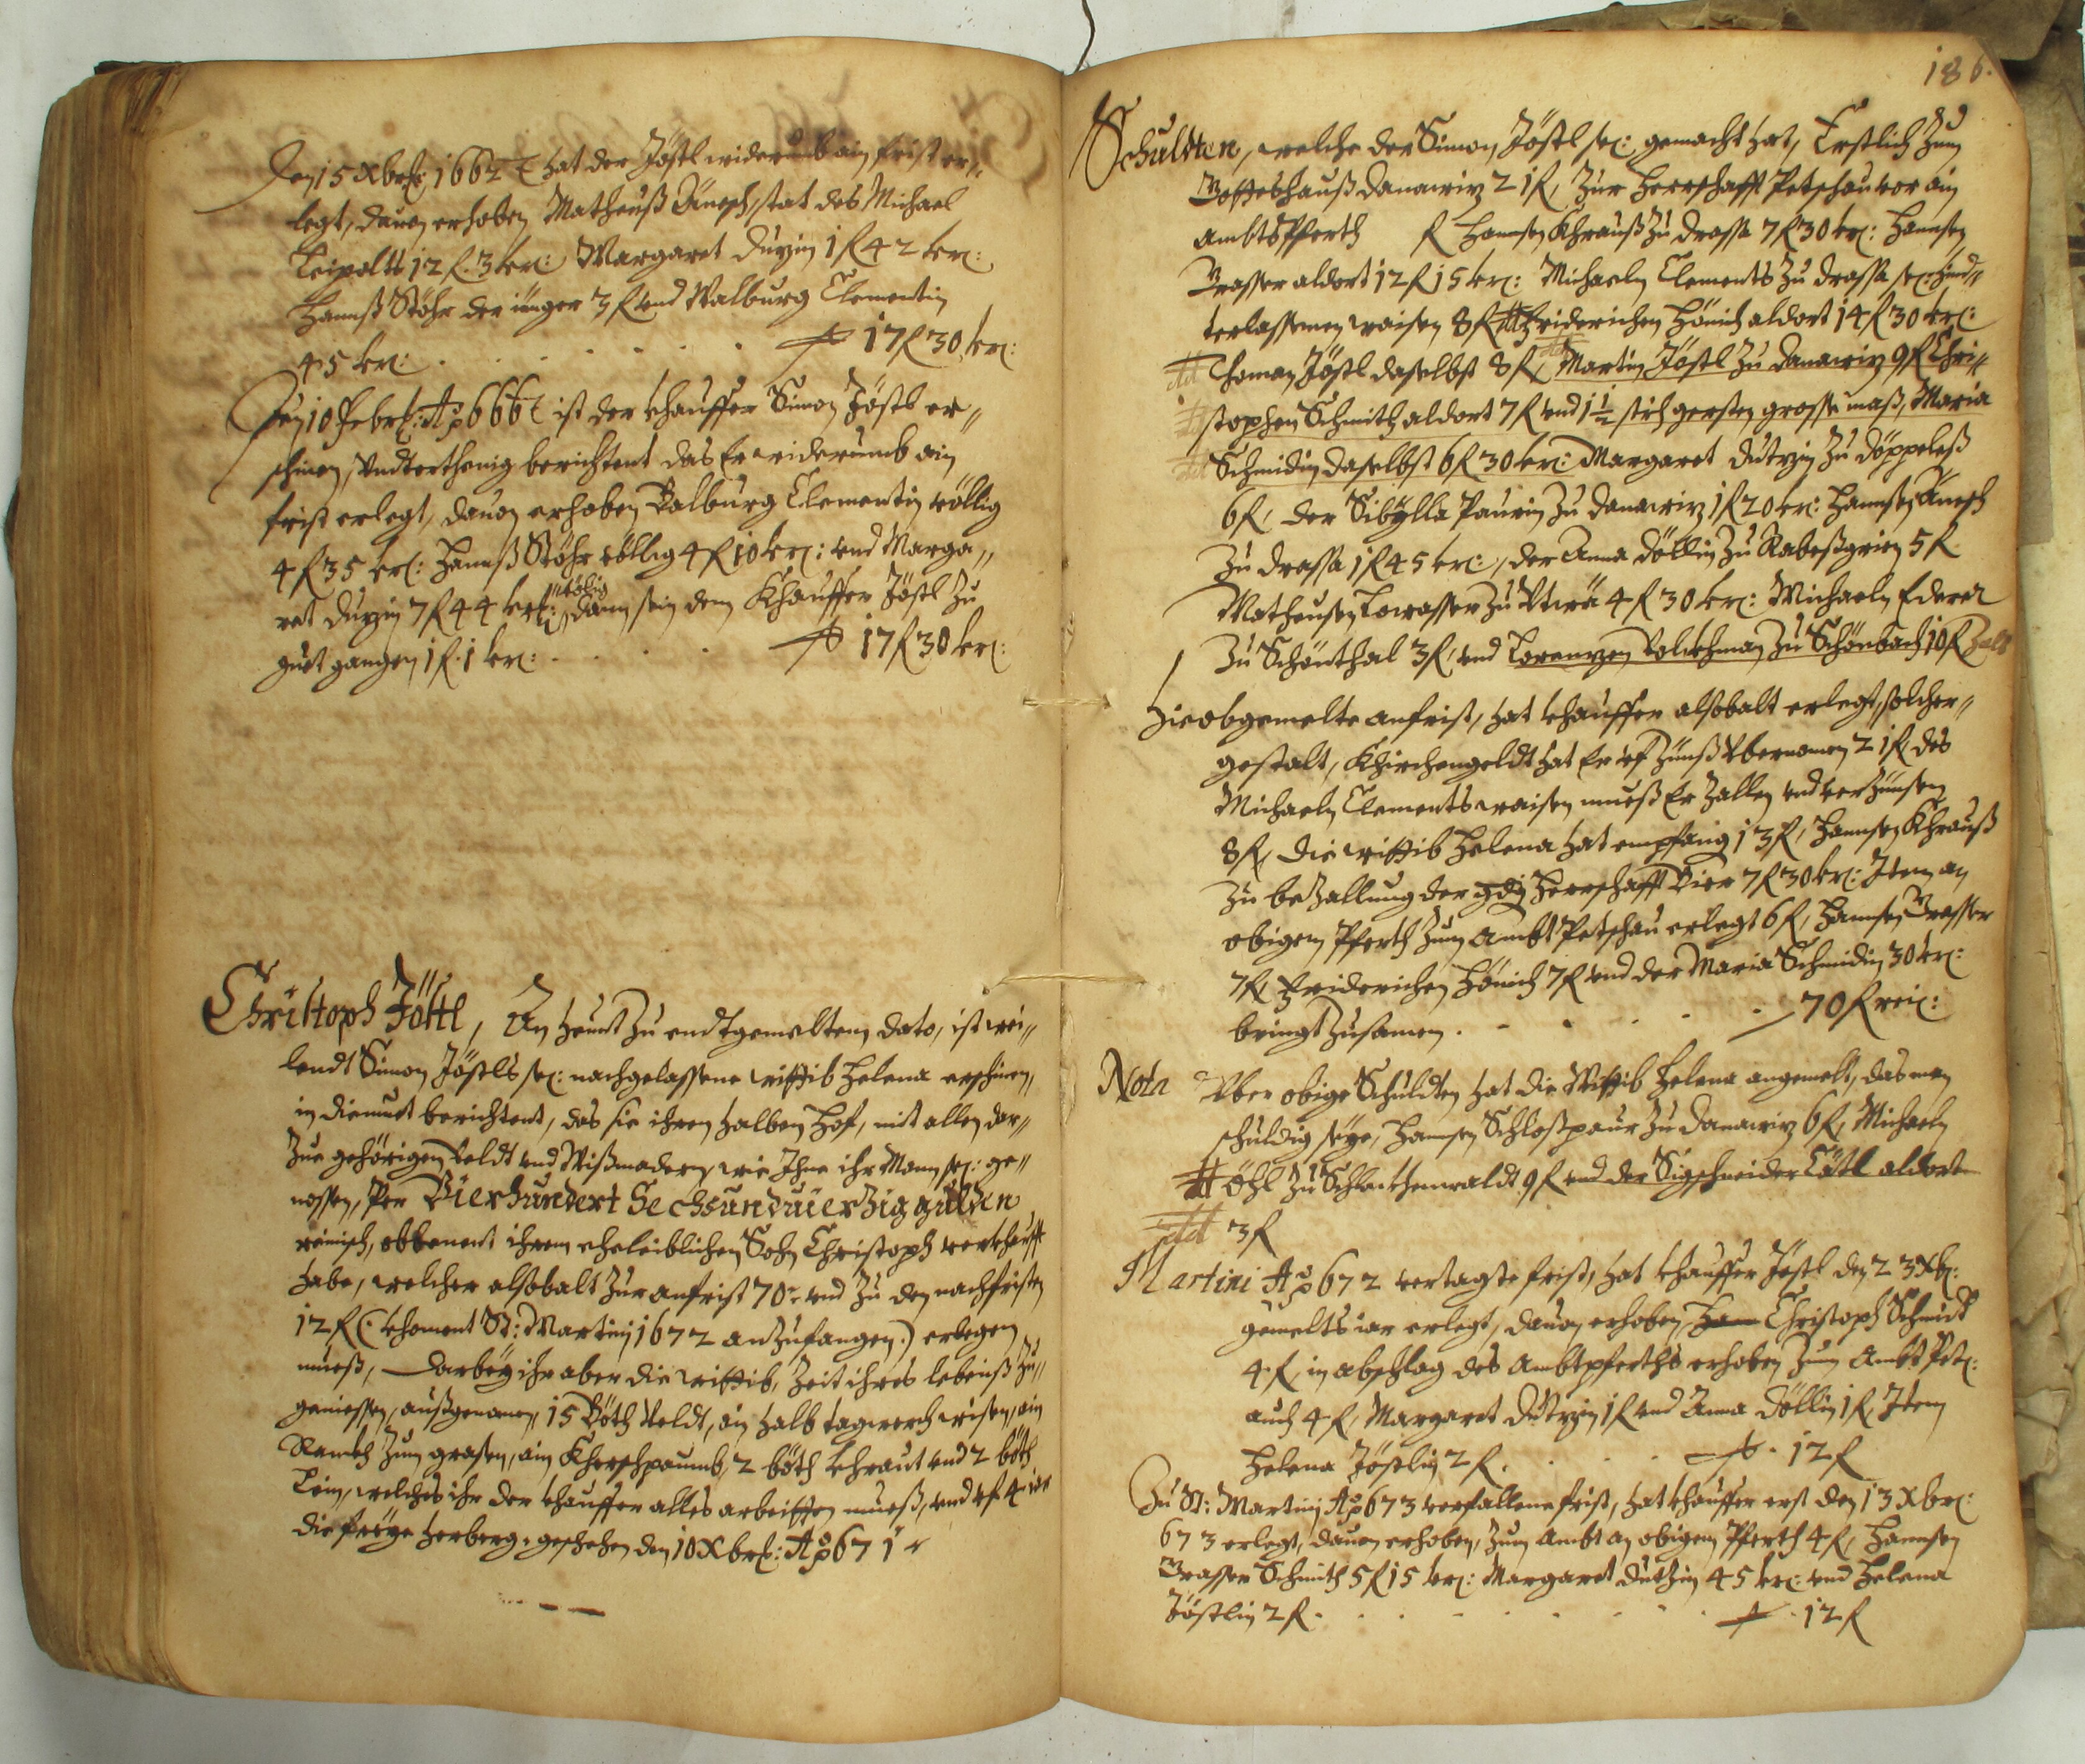 Den 15 Xbr: 1662 hat der Jöstl widerumb ain frist er,,
legt, dauon erhoben Matheuß Änesch, stat des Michael
Leipoltts 12 f. 3 kr: Margaret Duzin 1 f 42 kr:
Hannß Stöhr der iünger 3 f vnd Walburg Clementin
45 kr: . . . . . 17 f 30 kr:
Den 10 Febr: Ao 666 ist der khauffer Simon Jöstl er,,
schinen, Vndterthenig berichtent das Er widerumb ain
frist erlegt, dauon erhoben Walburg Clementin völlig
4 f 35 kr: Hannß Stöhr völlig 4 f 10 kr: vnd Marga,,
ret Duzin 7 f 44 kr: völlig dann sein dem Khauffer Jöstl Zu
guet gangen 1 f. 1 kr: . . . . 17 f 30 kr:
Christoph Jöstl, An heunt zu endtgemeltem dato, ist wei,,
lendt Simon Jöstls se: nachgelassene wittib Helena erschinen,
in diemuet berichtent, das sie ihren halben Hof, mit allen dar,,
Zue gehörigen Veldt vnd Wißmadern, wie Ihne ihr Mann se: ge,,
nossen, Per Vierhundert Sechsunduierzig gulden
reinisch, obbenent ihrem eheleiblichen Sohn Christoph verkhaufft
habe, welcher alsobalt Zur anfrist 70 vnd Zu den nachfristen
12 f (: khoment St: Martinj 1672 anzufangen :) erlegen
mueß, Darbey ihr aber die wittib, Zeit ihres lebenß Zu,,
geniessen, außgenomen, 15 Böth Veldt, ain halb tagwerch wisen, ain
Ranckh Zum grasen, ain Kherschpaumb, 2 böth khraut vnd 2 böth
Lein, welches ihr der khauffer alles arbeitten mueß, vnd vf 4
die freye Herberg. geschehen den 10 Xbr: Ao 671
186.
Schuldten, welche der Simon Jöstl se: gemacht hat, Erstlich Zum
Gotteshauß Danawiz 21 f, Zur Herrschafft Petschau vor ain
Ambts Pferth f Hannsen Khrauß Zu Drossa 7 f 30 kr: Hannsen
Grasser aldort 12 f 15 kr: Michaeln Clements Zu Drossa se: hind,,
terlassenen waisen 8 f Friderichen Hönich aldort 14 f 30 kr:
Thoman Jöstl daselbst 8 f, Martin Jöstl Zu Danawiz 9 f Chri,,
stophen Schmith aldort 7 f vnd 1 1/2 strh gersten grosse maß, Maria
Schmidin daselbst 6 f 30 kr: Margaret Dutzin Zu Döppeleß
6 f, der Sibylla Paurin Zu Danawiz 1 f 20 kr: Hannsen Änesch
Zu Drossa 1 f 45 kr:, der Anna Döllin Zu Rabeßgrien 5 f
Matheusen Lowasser Zu Vtwa 4 f 30 kr: Michaeln Ederer
Zu Schönthal 3 f, vnd Lorenzen Volckhman Zu Schönbach 10 f Zalt
Hieobgemelte anfrist, hat khauffer alsobalt erlegt, solcher,,
gestalt, Khirchengeldt hat Er vf Zünß Vbernomen 21 f, des
Michaeln Clements waisen mueß Er Zallen vnd verZünsen
8 f, die wittib Helena hat empfang 13 f, Hannsen Khrauß
Zu beZallung der gdig Herrschafft Bier 7 f 30 kr: Item an
obigem Pferth Zum Ambt Petschau erlegt 6 f, Hannsen Grasser
7 f, Friderichen Hönich 7 f vnd der Maria Schmidin 30 kr:
bringt Zusamen . . . . . 70 f rei:
Nota Vber obige Schuldten hat die Wittib Helena angemelt, das man
schuldig seye, Hannsen Schloßpaur Zu Danawiz 6 f, Michaeln
Öhl Zu Schlackhenwaldt 9 f vnd der Sigschneider Cätl aldort
3 f
Martini Ao 672 vertagte frist, hat khauffer Jöstl den 23 Xb:
gemelts iar erlegt, dauon erhoben, Christoph Schmidt
4 f, in abschlag des Ambtpferths erhoben Zum Ambt Pet:
auch 4 f, Margaret Dutzin 1 f vnd Anna Döllin 1 f, Item
Helena Jöstlin 2 f . . . . 12 f
Zu St: Martinj Ao 673 verfallene frist, hat khauffer erst den 13 Xbr:
673 erlegt, dauon erhoben, Zum Ambt an obigem Pferth 4 f, Hannsen
Grasser Schmith 5 f 15 kr: Margaret Dutzin 45 kr: vnd Helena
Jöstlin 2 f . . . . . 12 f